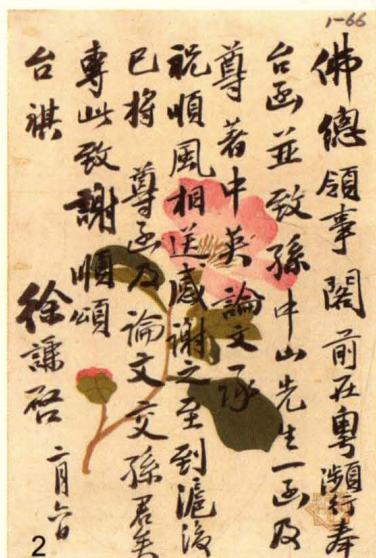 1-66
佛總領事 閣前在粵瀕行奉
台函並致孫中山先生一函及
尊著中英論文承
祝順風相送感謝之至到滬後
已將 尊函及論文交孫君矣
專此致謝順頌
台祺 徐謙啓 二月六日
2